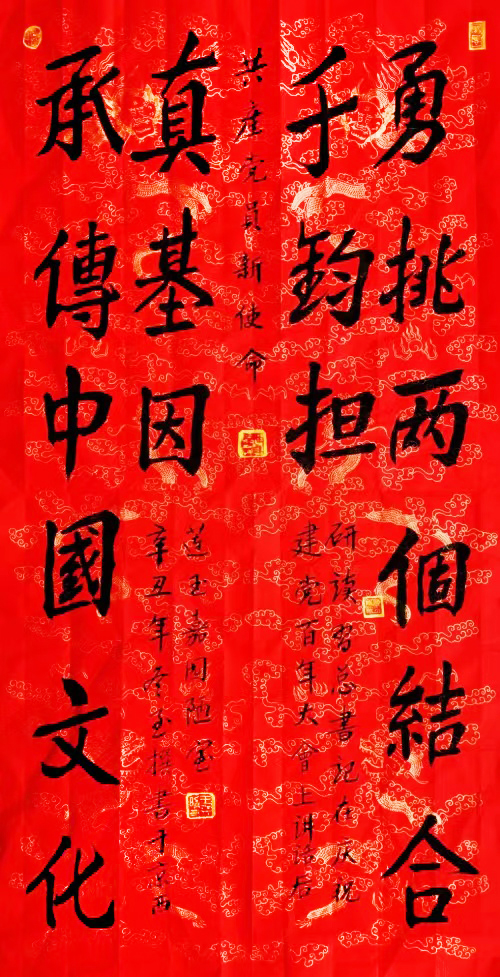 勇挑两個結合
千鈞担
研读習总書记在庆祝
建党百年大會上讲話后
共産党員新使命
承傳中國文化
真基因
辛丑年冬至撰書于京西
莲玉嘉园陋室